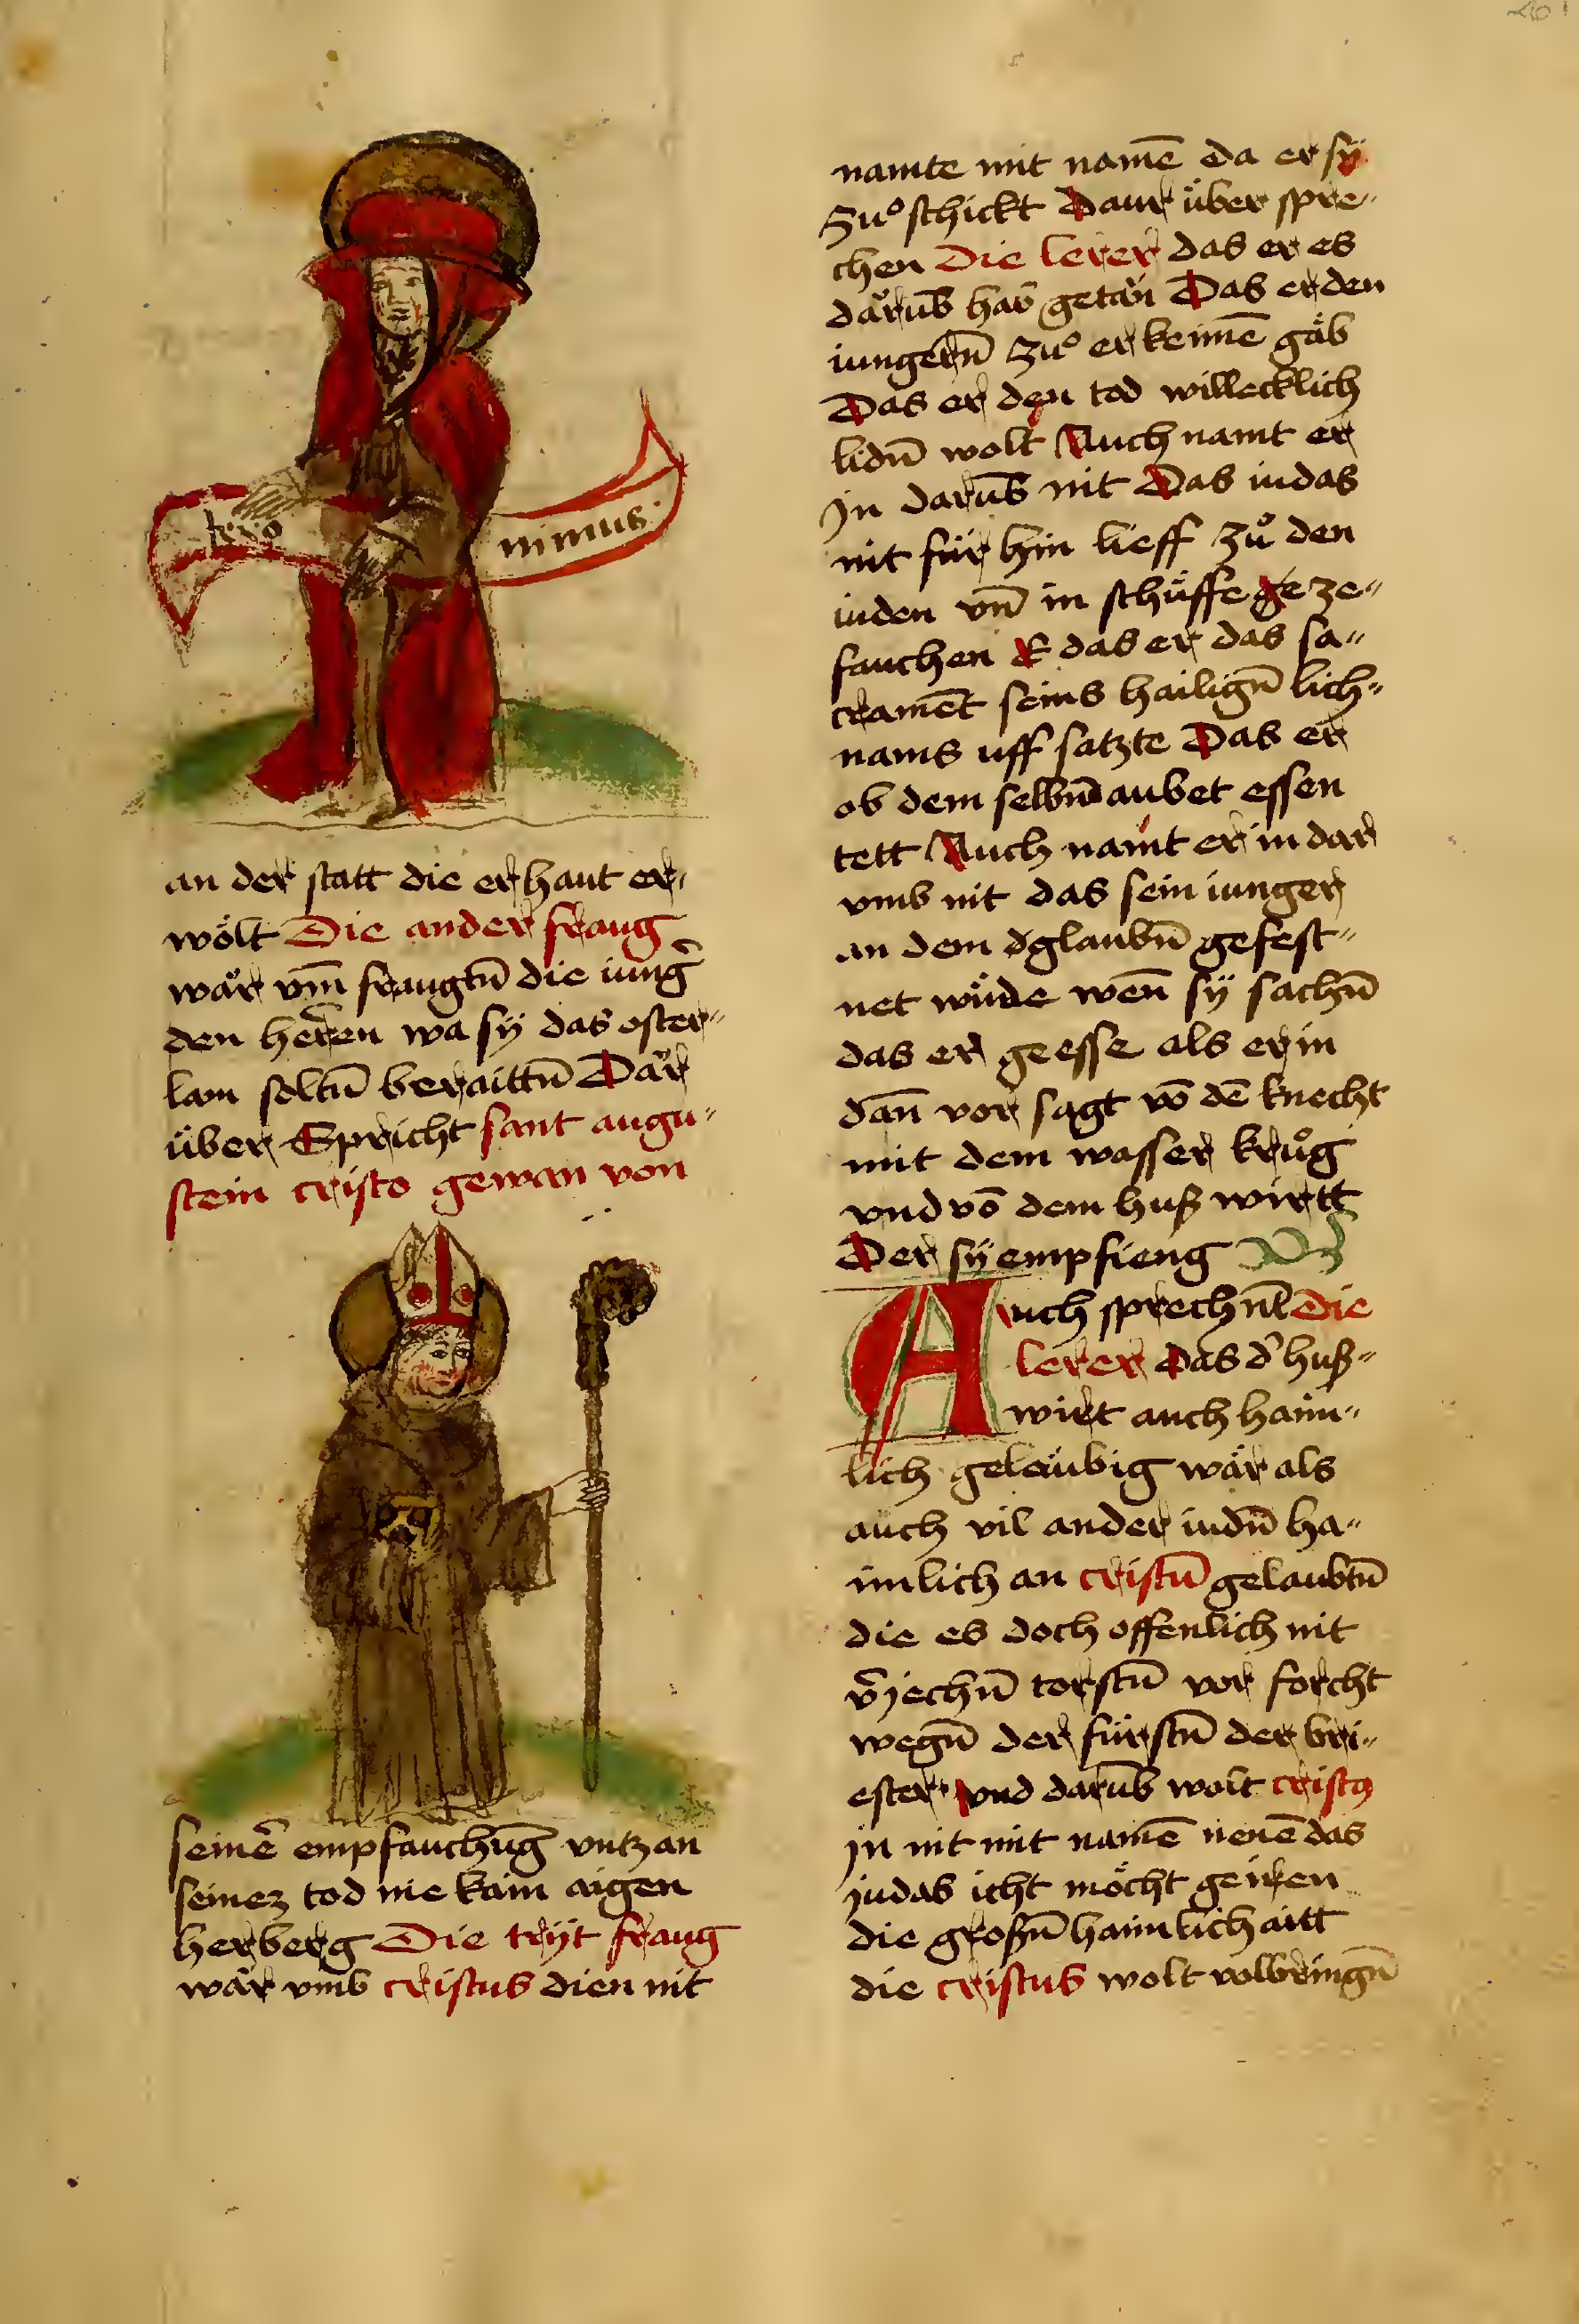 Jero
nimus
an der statt die er haut er„
wölt Die ander fraug
wär vm̄ fraugtn̄ die iungˀ
den herren wa sÿ das oster„
lam soltn̄ beraittn̄ Dar
über Spricht sant augu„
stein cristo gewan von
seinē empfauchūg vntz an
seinez tod nie kain aigen
herberg Die trÿt fraug
wär vmb cristus dien nit
namte mit namē da er sÿ
Zuͦ schickt Daur über spre„
chen Die lerer das er es
darūb hab getan Das er den
iungern̄ Zuͦ erkennē gäb
Das er den tod willecklich
lidn̄ wolt Auch namt er
Jn darūb nit Das iudas
nit für hin lieff Zuͦ den
iuden vn̄ in schüffe ge ze„
fauchen E das er das sa„
cramēt seins hailign̄ lich„
nams uff satzte Das er
ob dem selbn̄ aubet essen
tett Auch namt er in dar
vmb nit das sein iunger
an dem glaubn̄ gefest„
net wüde wen̄ sÿ sachn̄
das er geesse als er in
dan̄ vor sagt vō dē knecht
mit dem wasser kruͦg
vnd vō dem huß wirtt
Der sÿ empfieng
Auch sprechn̄t Die
lerer Das dˀ huß„
wirt auch haim„
lich geläubig wär als
auch vil ander iudn̄ ha„
imlich an cristn̄ gelaubtn̄
die es doch offenlich nit
v̄jechn̄ torstn̄ vor forcht
wegn̄ der fürstn̄ der bri„
ester Vnd darūb wolt cristꝯ
jn nit mit namē nenē das
judas icht möcht
die großn̄ haimlich aitt
die cristus wolt volbringn̄